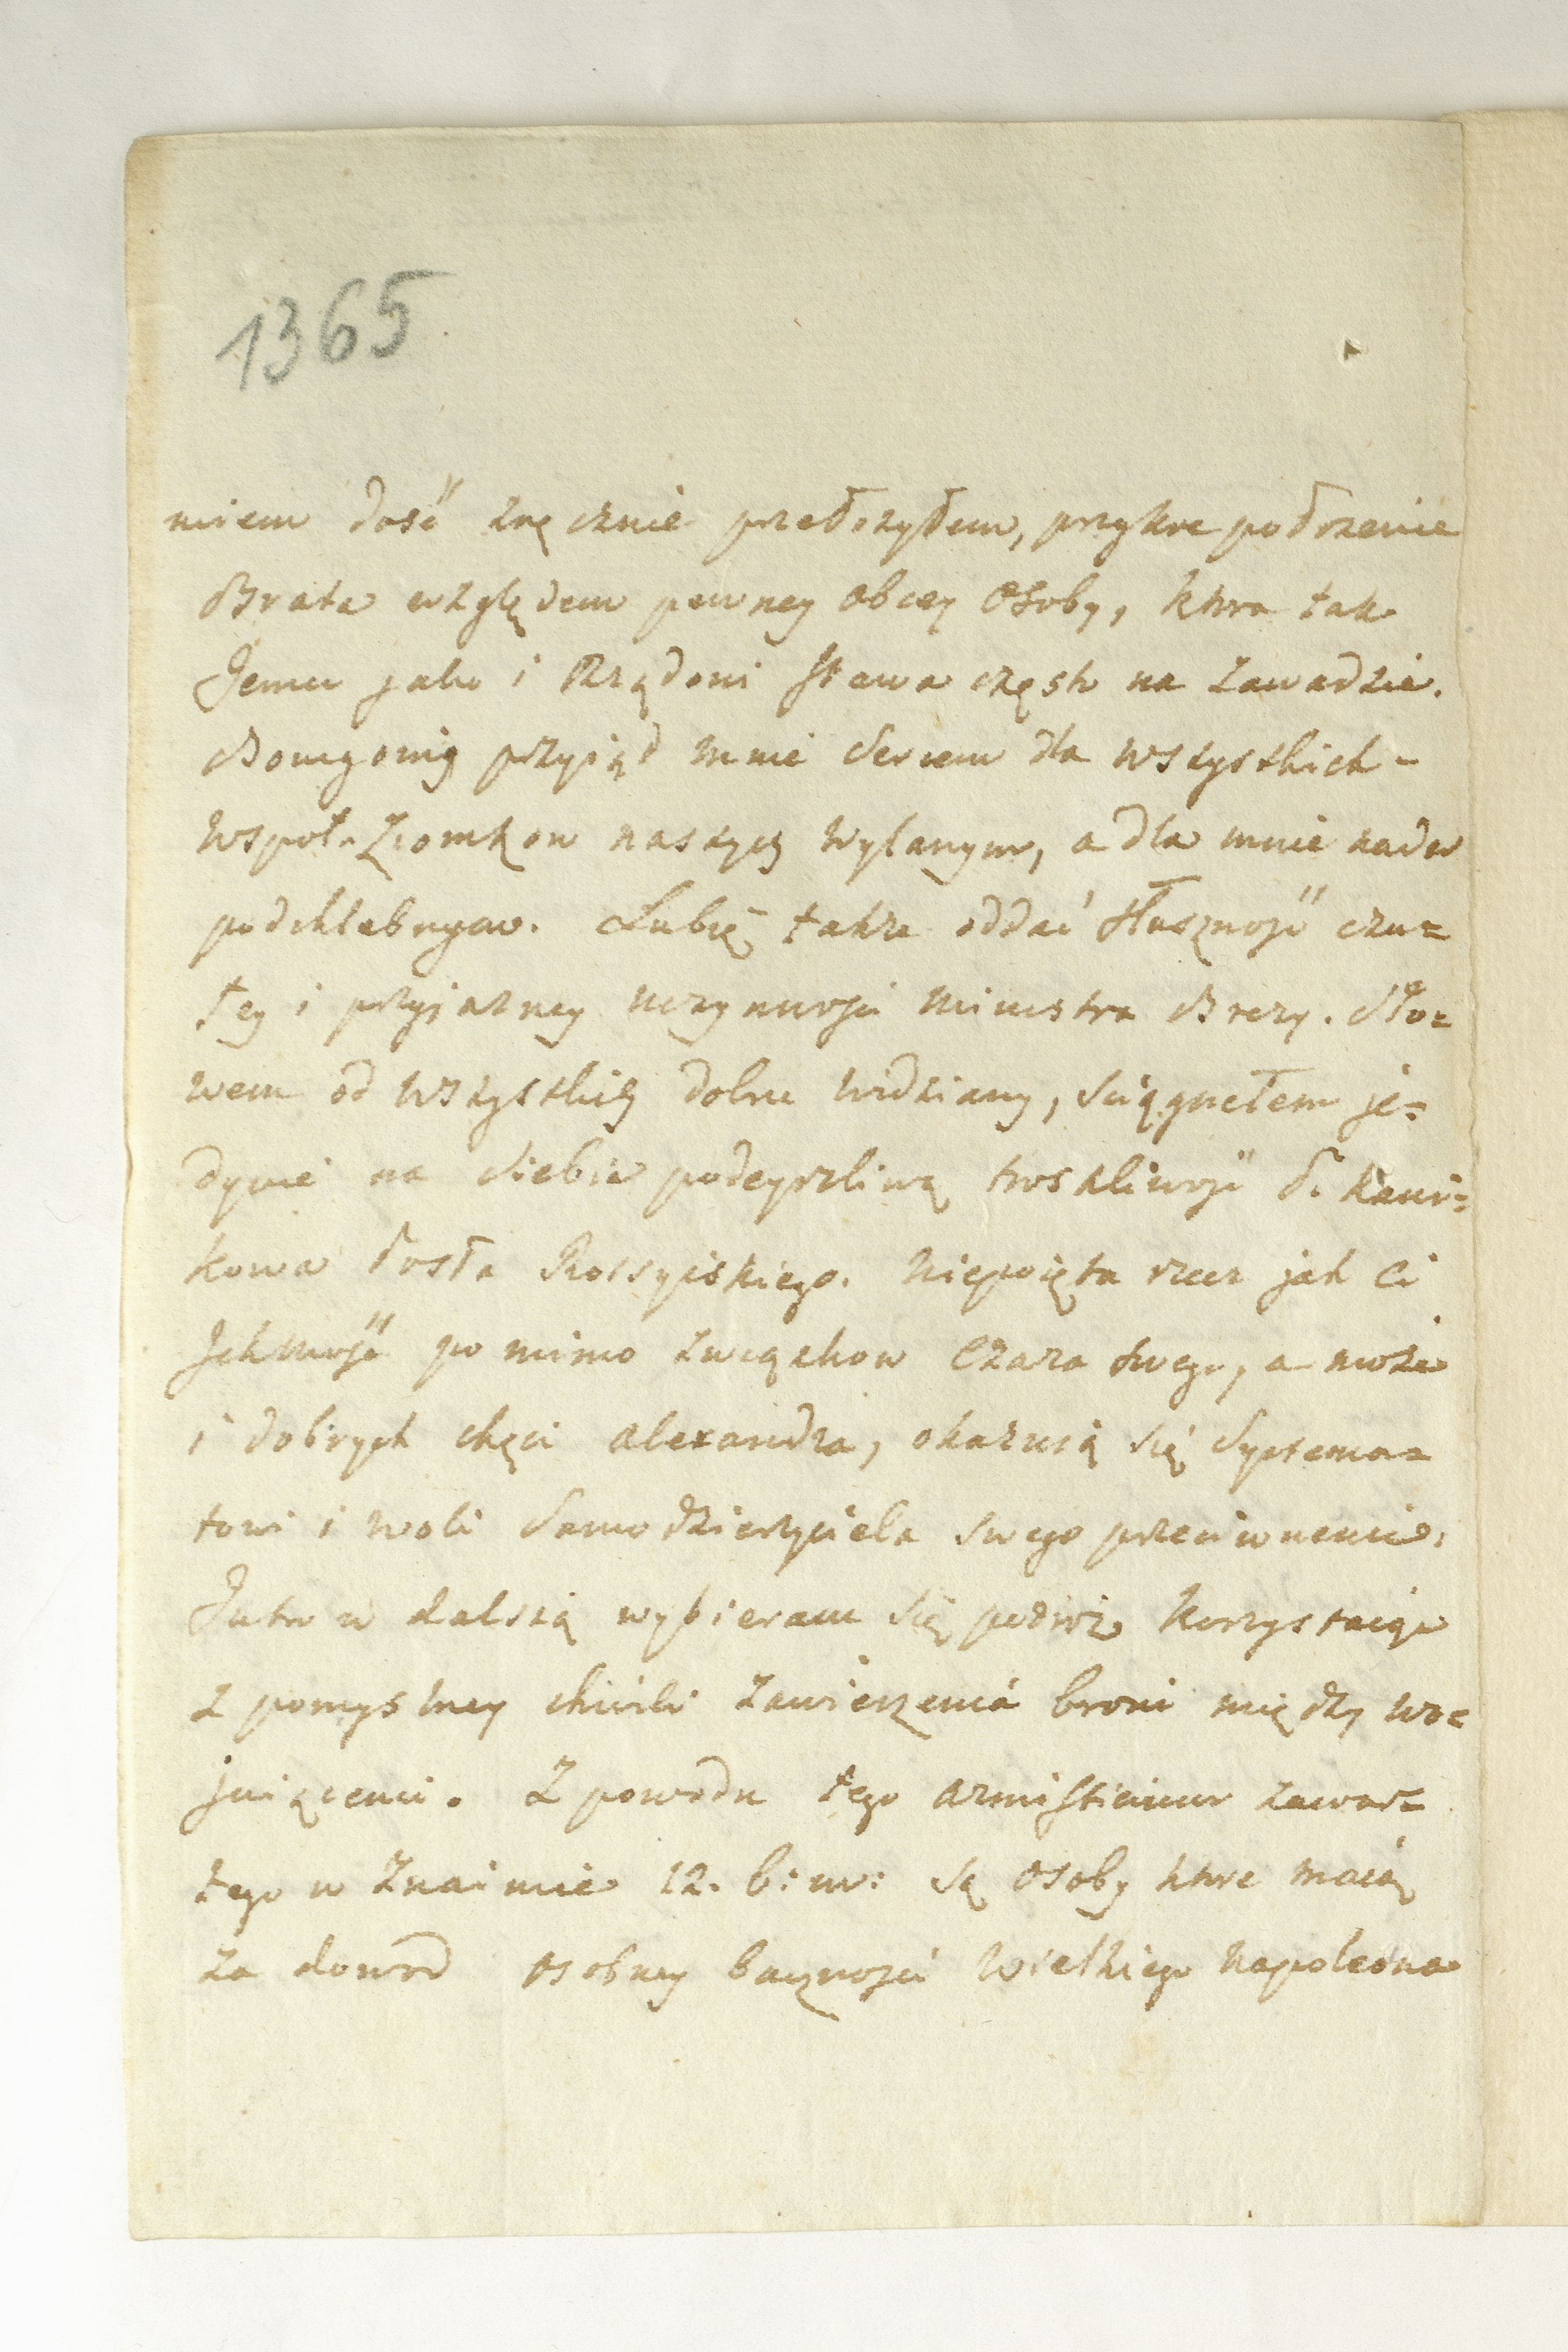 1365
niem dość zręcznie przełożyłem, przykre położenie
Brata względem pewney obcey Osoby, ktora tak
Jemu jako i Rządowi stawa często na zawadzie.
Bourgoing przyiął mnie sercem dla wszystkich
wspoł-Ziomkow naszych wylanym, a dla mnie nader
podchlebnym. Lubię także oddać słuszność czu=
łey i przyjazney uczynności Ministra Brezy. Sło=
wem od wszystkich dobrze widziany, sciągnełem je=
dynie na siebie podeyrzliwą troskliwość P. Kani=
kowa Posła Rossyiskiego. Niepoięta rzecz jak Ci
Ichmość po mimo związkow Czara swego, a może
i dobrych chęci Alexandra, okazuią się systema=
towi i woli Samodzierzyciela swego przeciwnemi.
Jutro w dalszą wybieram się podróż korzystaiąc
z pomyslney chwili zawieszenia broni między wo=
juiącemi. Z powodu tego armisticium zawar=
tego w Znaimie 12. b: m: są osoby ktore maią
za dowód osobney baczności Wielkiego Napoleona